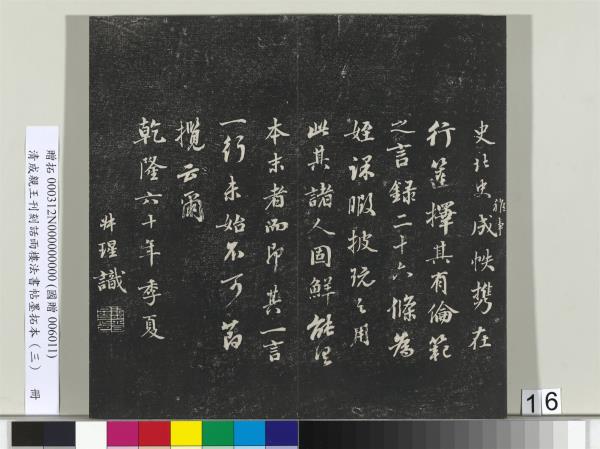 史北史成帙攜在
行篋擇其有倫範
之言錄二十六條為
姪課暇披玩之用
此其諸人固鮮能
本末者而即其一言
一行未始不可節
攬云爾
乾隆六十年季夏
瑆識
贈拓000312N000000000(國贈006011)
清成親王刊刻話雨樓法書帖墨拓本（三） 冊
16